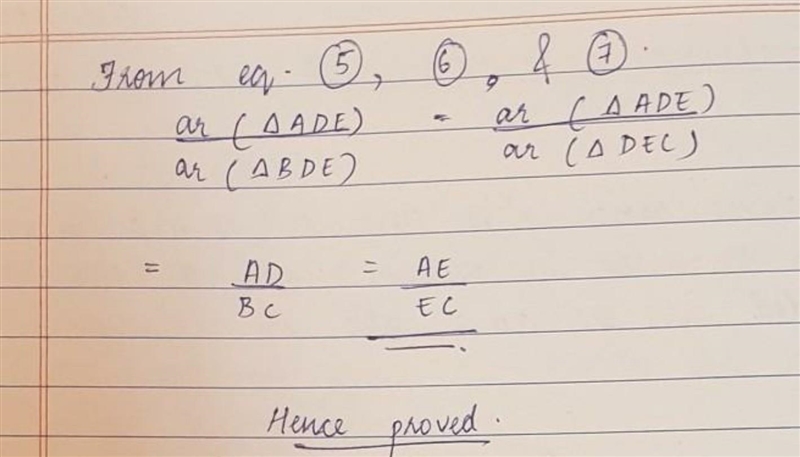 From eq. ⑤, ⑥, & ⑦.
ar (ΔADE) = ar (ΔADE)
ar (ΔBDE) ar (ΔDEC)
= AD = AE
BC EC
Hence proved.